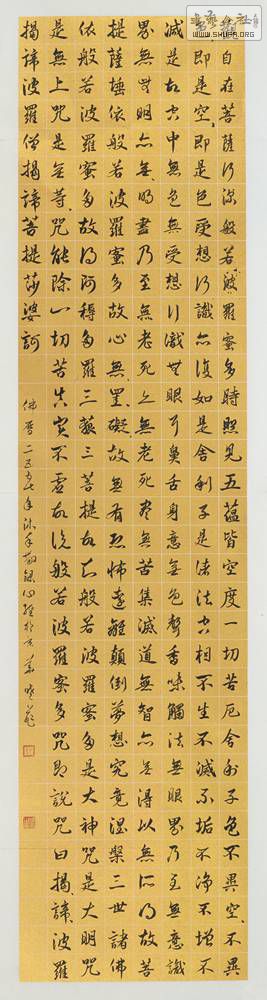 自在菩薩行深般若波羅蜜多時照見五蘊皆空度一切苦厄舍利子色不異空、不異
即是空、即是色受想行識亦復如是舍利子是諸法空相不生不滅不垢不淨不增不
滅是故空中無色無受想行識無眼耳鼻舌身意無色聲香味觸法無眼界乃至無意識
界無無明亦無、明盡乃至無老死亦無老死盡無苦集滅道無智亦無得以無所得故菩
提薩埵依般若波羅蜜多故心無罣礙、故無有恐怖遠離顛倒夢想究竟涅槃三世諸佛
依般若波羅蜜多故得阿耨多羅三藐三菩提故知般若波羅蜜多是大神咒是大明咒
是無上咒是無等、咒能除一切苦真實不虛故說般若波羅蜜多咒即說咒曰揭、諦、波羅
揭諦波羅僧揭諦菩提莎婆訶
佛曆二五五七年沐手敬錄心經於京華